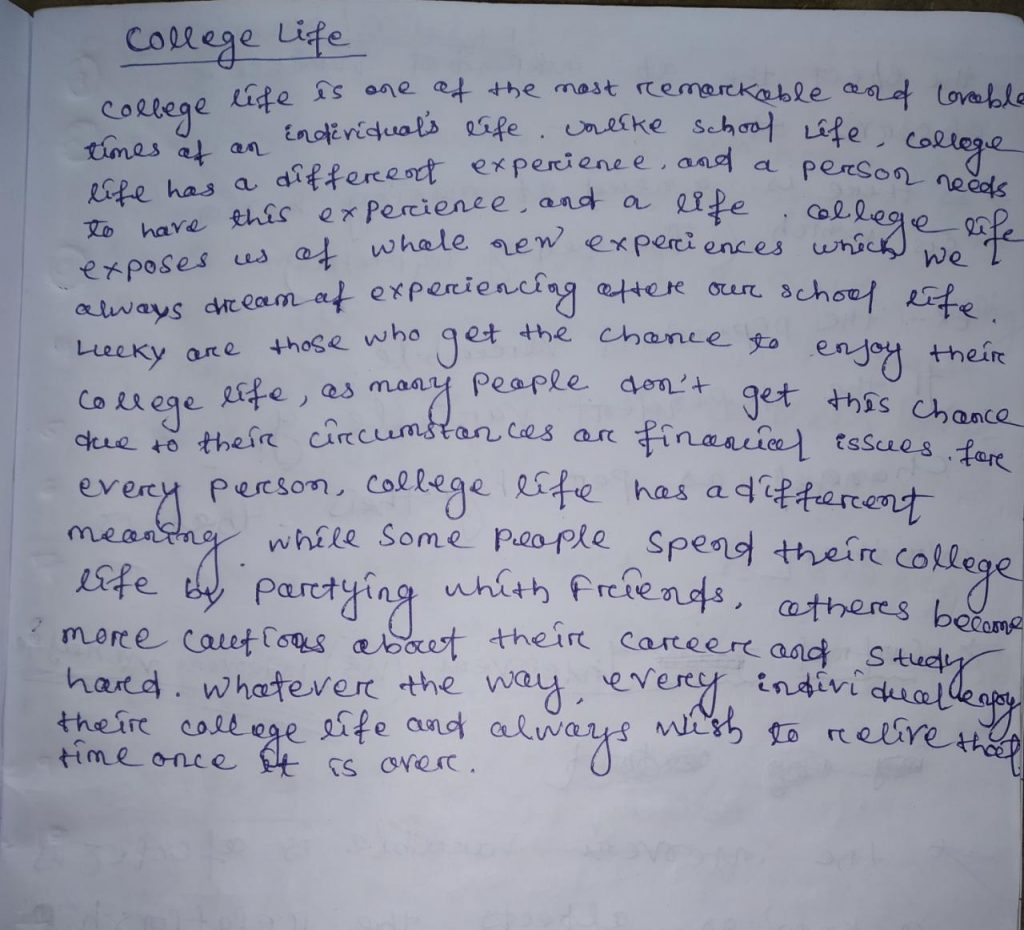 College Life
College life is one of the most remarkable and lovable
times of an individual's life. Unlike school life, college
life has a different experience, and a person needs
to have this experience, and a life. college life
exposes us of whole new experiences which we
always dream of experiencing after our school life.
Lucky are those who get the chance to enjoy their
college life, as many people don't get this chance
due to their circumstances or financial issues. for
every person, college life has a different
meaning. while some people spend their college
life by partying whith friends, others become
more cautious about their career and study
hard. whatever the way, every individual enjoy
their college life and always wish to relive that
time once it is over.